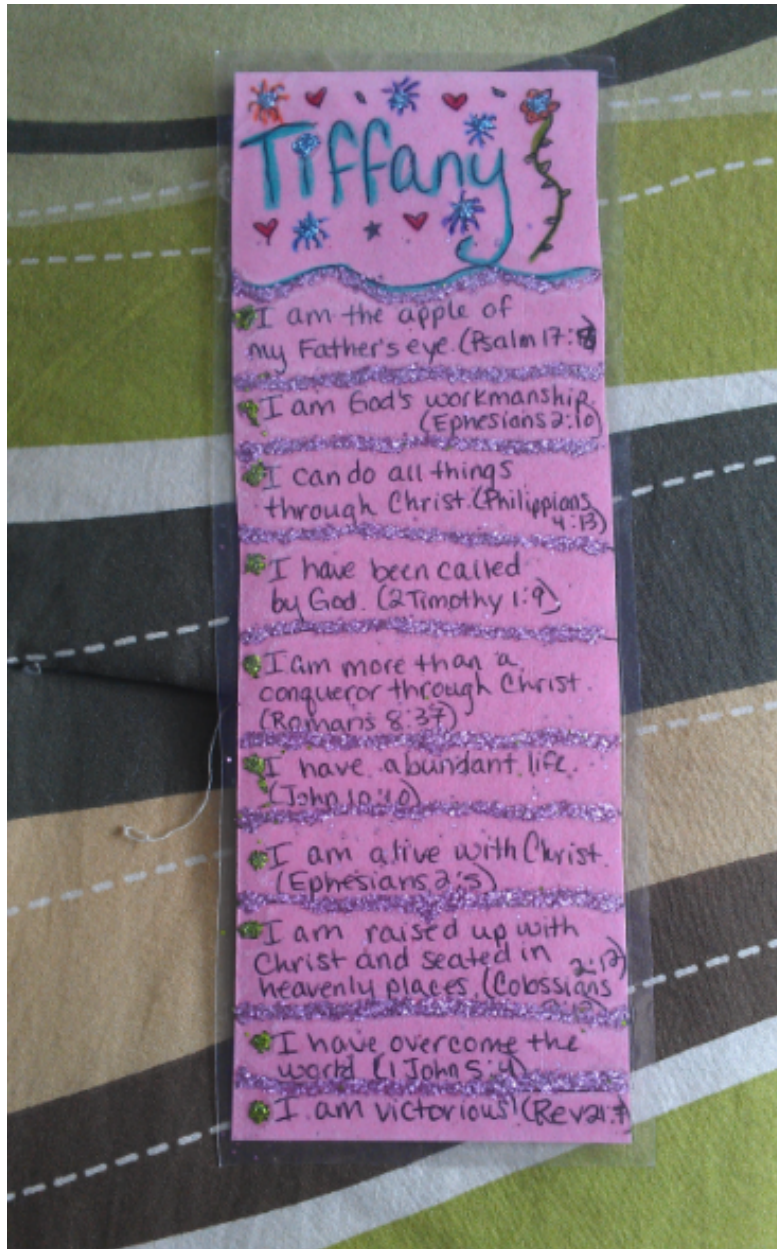 Tiffany
I am the apple of
my Father's eye. (Psalm 17:8
I am God's workmanship
(Ephesians 2:10)
I can do all things
through Christ. (Philippians
4:13)
I have been called
by God. (2 Timothy 1:9)
I am more than a
conqueror through Christ.
(Romans 8:37)
I have abundant life.
(John 10:10)
I am alive with Christ.
(Ephesians 2:5)
I am raised up with
Christ and seated in
heavenly places. (Colossians
2:12)
I have overcome the
world (1 John 5:4)
I am victorious! (Rev 21:7)